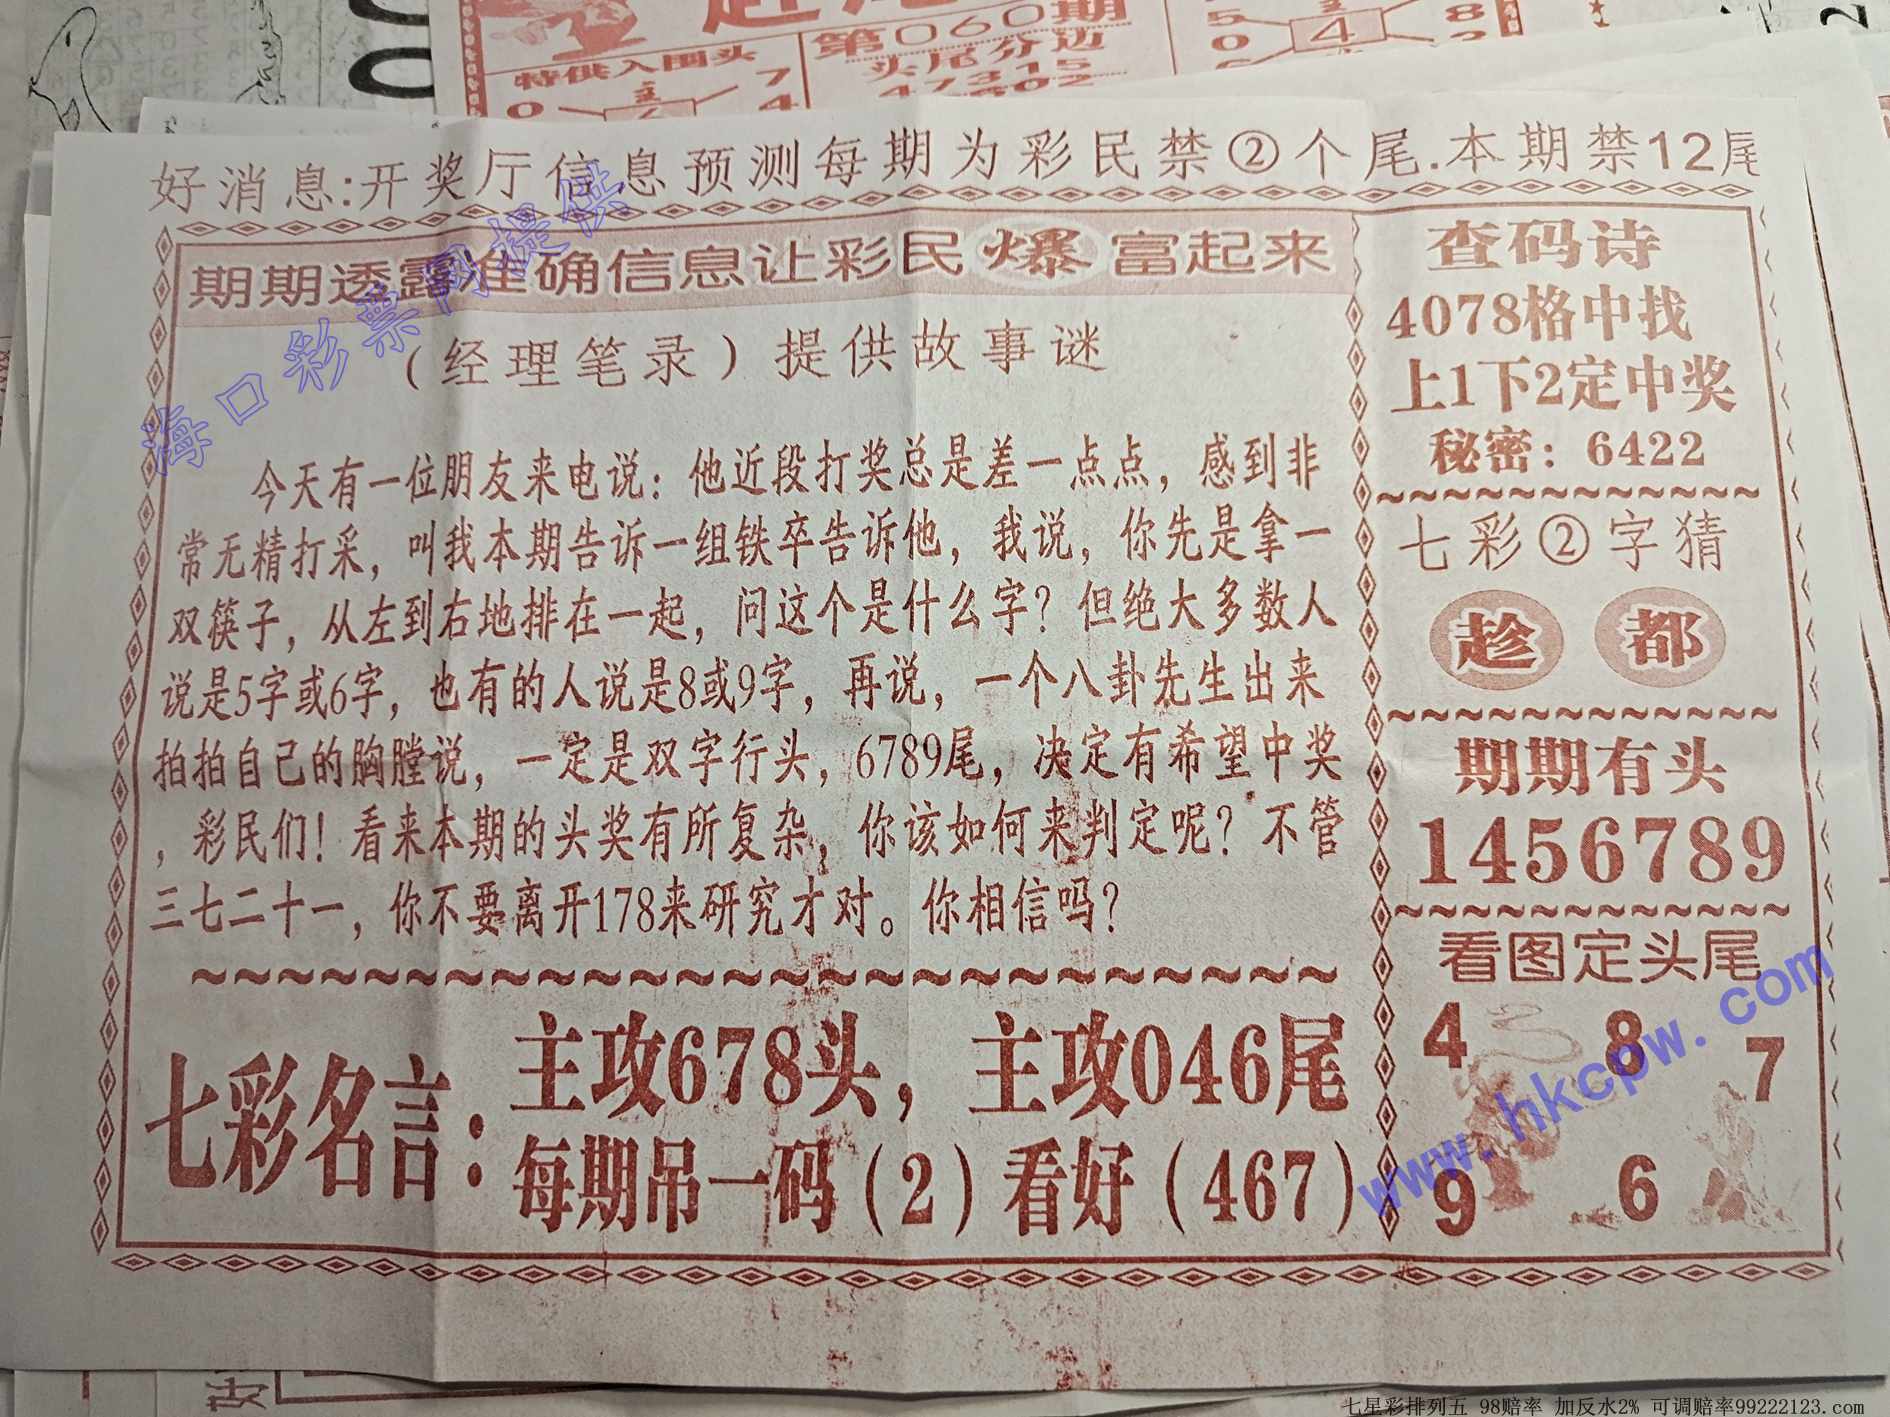 第060期
特供入围头
头尾分边
好消息:开奖厅信息预测每期为彩民禁②个尾.本期禁12尾
期期透露准确信息让彩民爆富起来
（经理笔录）提供故事谜
今天有一位朋友来电说：他近段打奖总是差一点点，感到非
常无精打采，叫我本期告诉一组铁卒告诉他，我说，你先是拿一
双筷子，从左到右地排在一起，问这个是什么字？但绝大多数人
说是5字或6字，也有的人说是8或9字，再说，一个八卦先生出来
拍拍自己的胸膛说，一定是双字行头，6789尾，决定有希望中奖
，彩民们！看来本期的头奖有所复杂，你该如何来判定呢？不管
三七二十一，你不要离开178来研究才对。你相信吗？
七彩名言：
主攻678头，主攻046尾
每期吊一码（2）看好（467）
查码诗
4078格中找
上1下2定中奖
秘密：6422
七彩②字猜
趁 都
期期有头
1456789
看图定头尾
4 8 7
9 6
海口彩票网提供
www.hkcpw.com
七星彩排列五 98赔率 加反水2% 可调赔率99222123.com